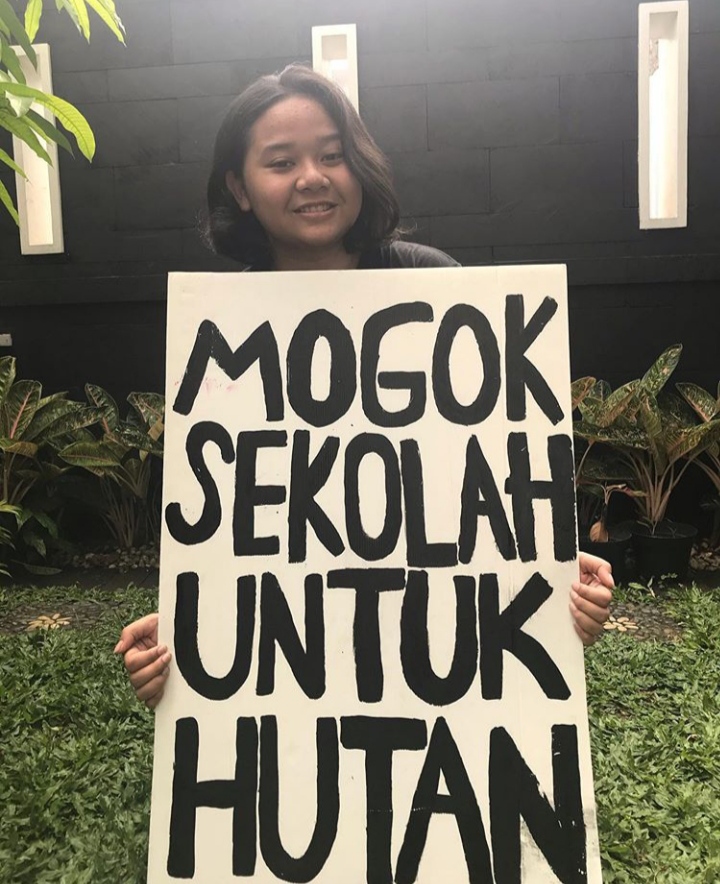 MOGOK
SEKOLAH
UNTUK
HUTAN